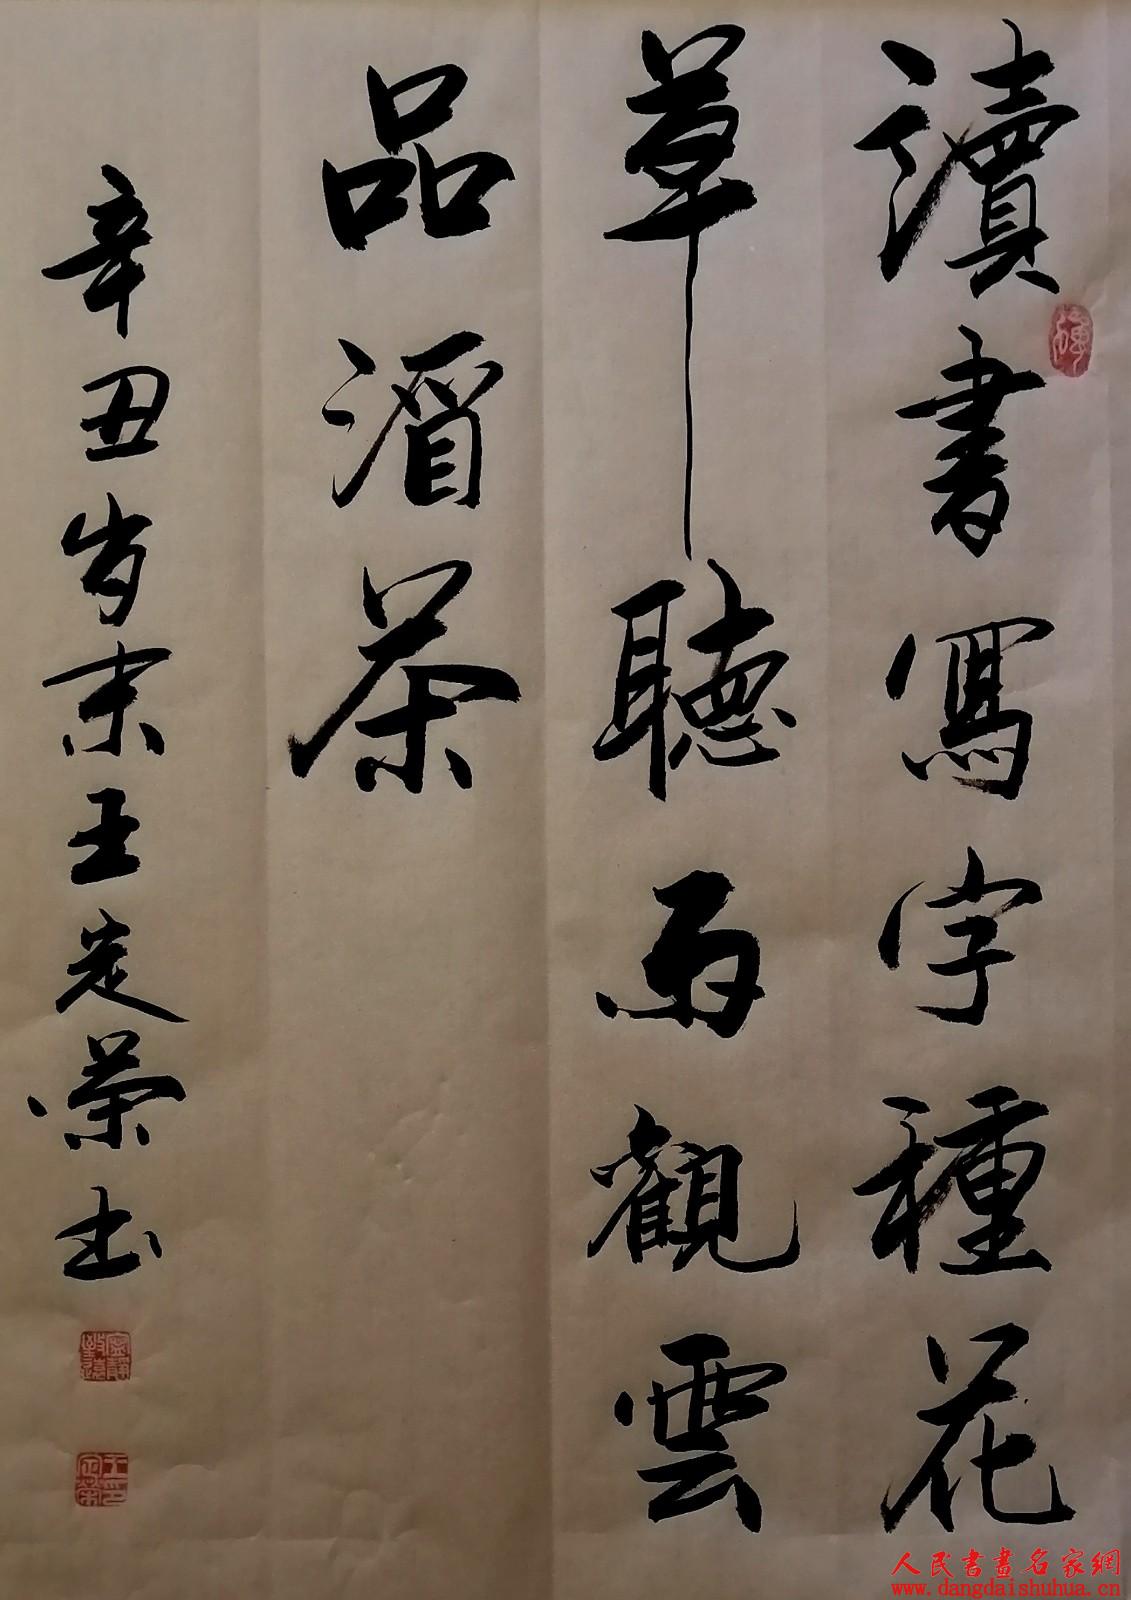 讀書寫字種花
草聽雨觀雲
品酒茶
辛丑岁末王定荣书
寧靜致遠
王定榮印
人民書畫名家網
www.dangdaishuhua.cn